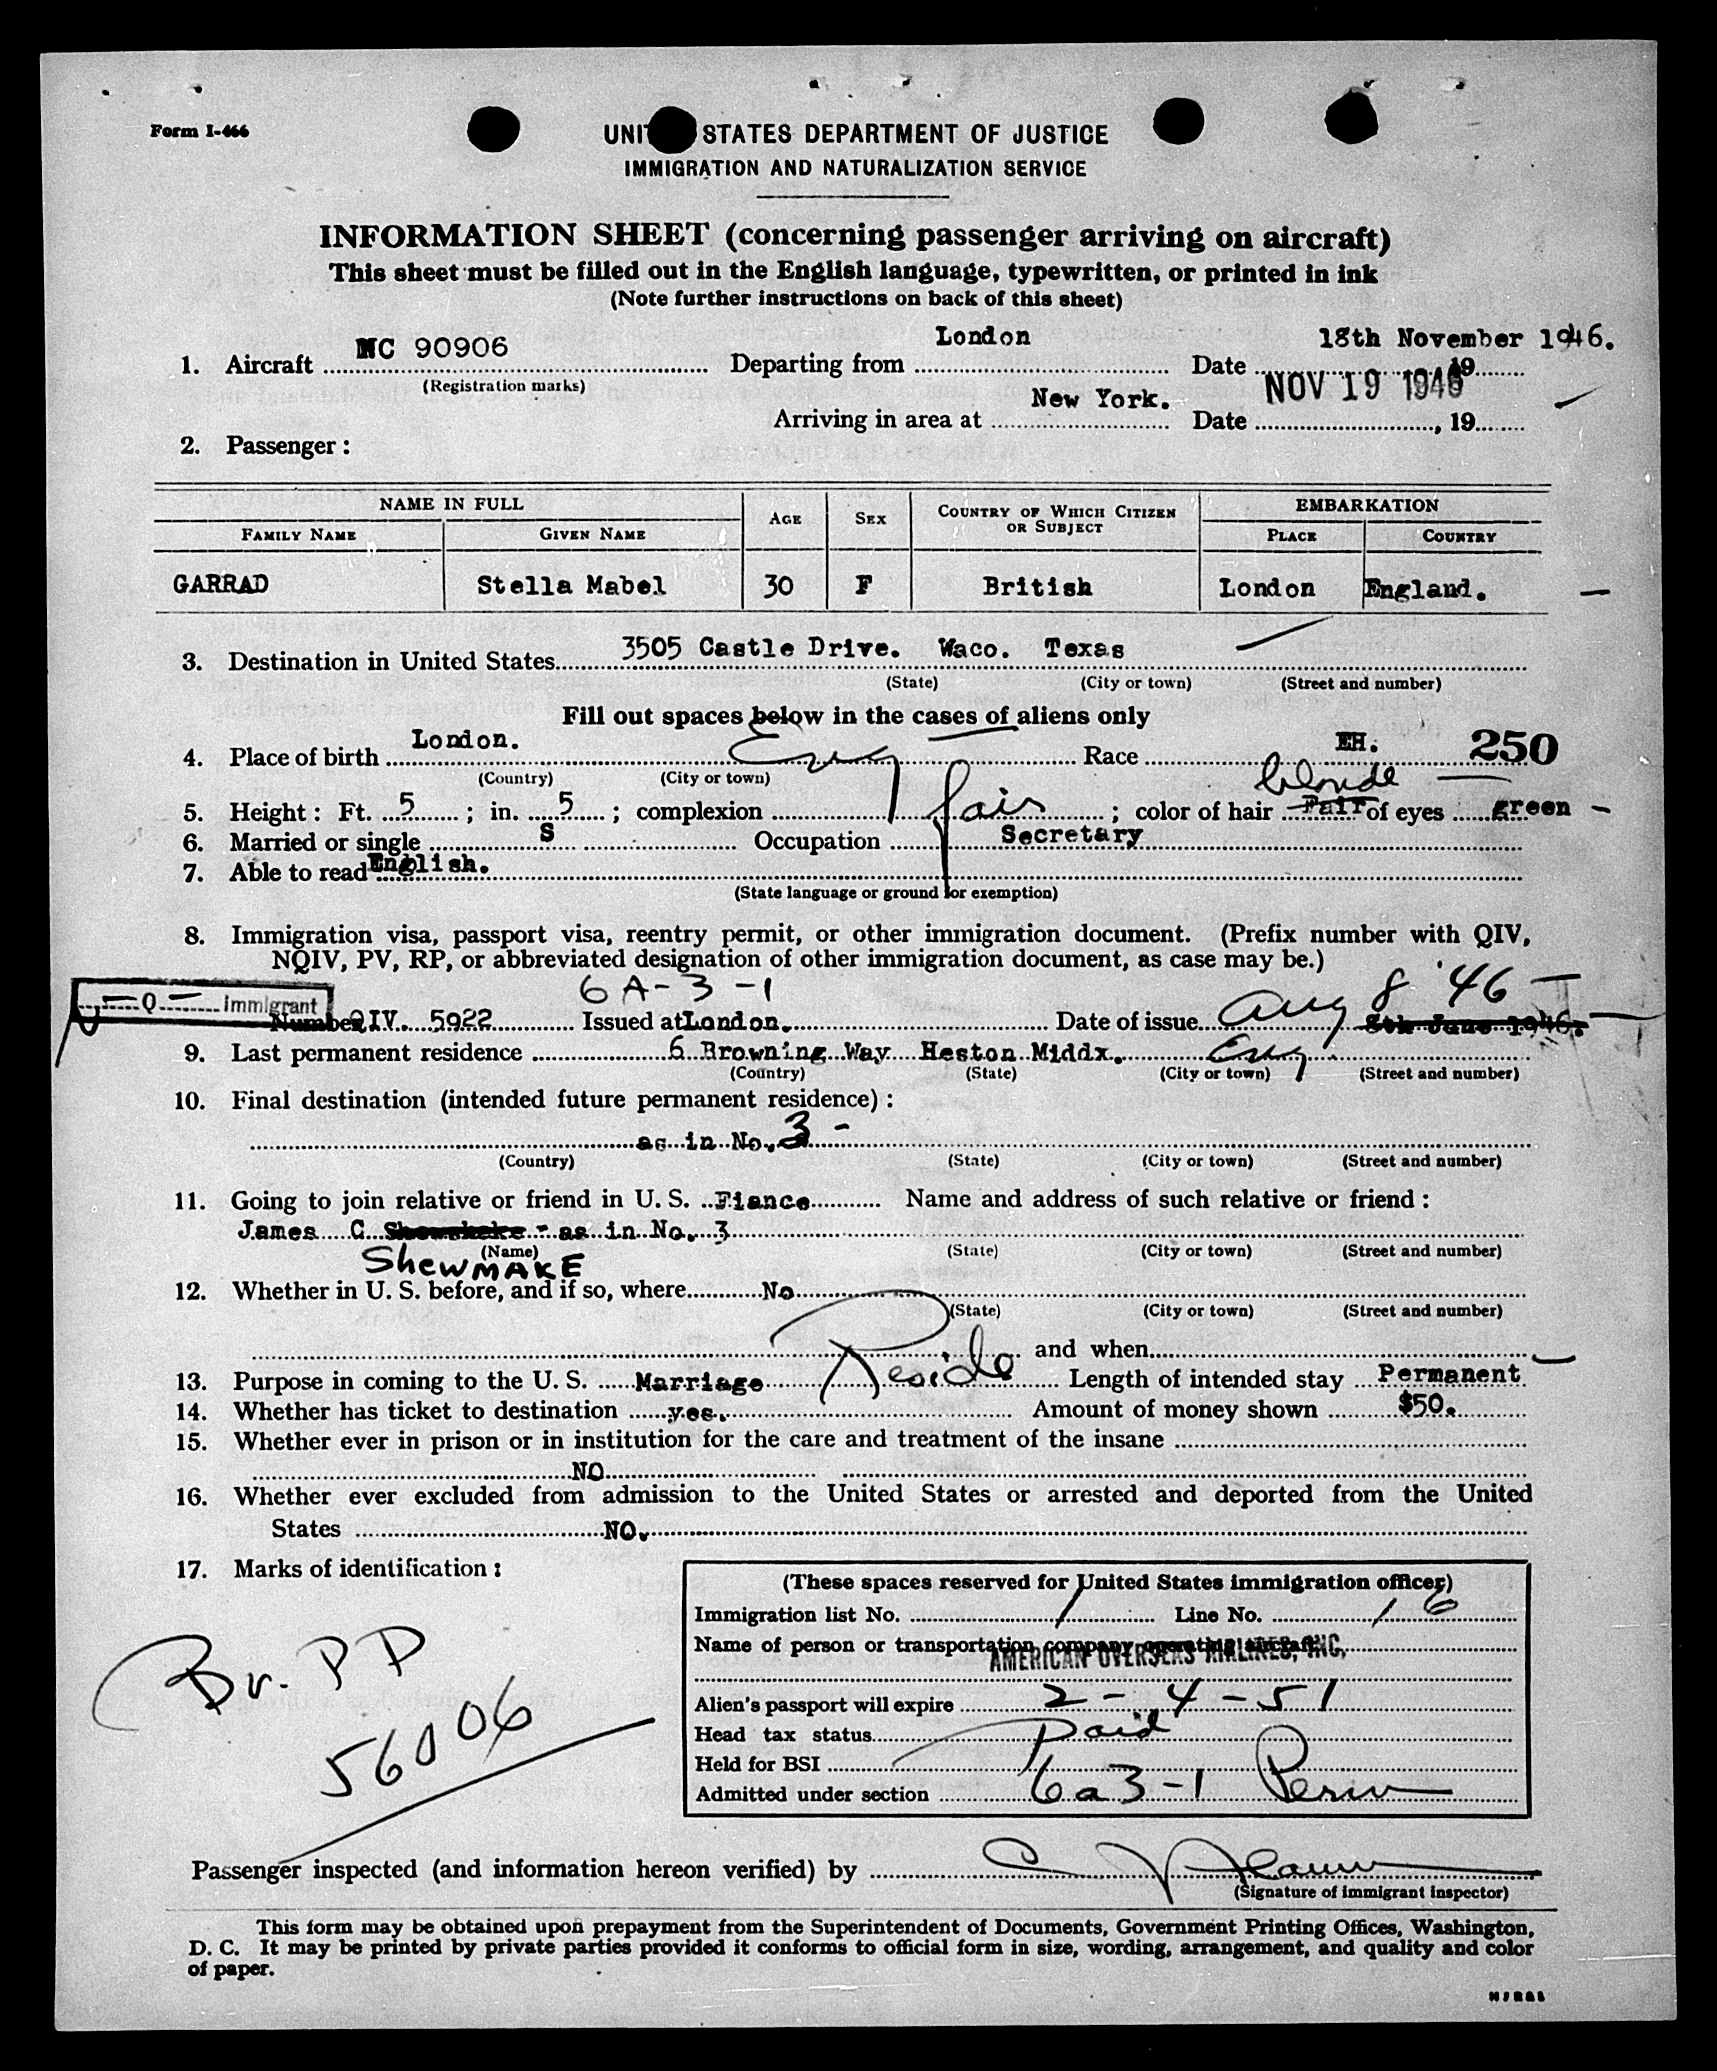 Form I-466
UNITED STATES DEPARTMENT OF JUSTICE
IMMIGRATION AND NATURALIZATION SERVICE
INFORMATION SHEET (concerning passenger arriving on aircraft)
This sheet must be filled out in the English language, typewritten, or printed in ink
(Note further instructions on back of this sheet)
1. Aircraft NC 90906 Departing from London Date 18th November 1946. 19
(Registration marks)
Arriving in area at New York. Date NOV 19 1946, 19
2. Passenger:
NAME IN FULL AGE SEX COUNTRY OF WHICH CITIZEN OR SUBJECT EMBARKATION
FAMILY NAME GIVEN NAME PLACE COUNTRY
GARRAD Stella Mabel 30 F British London England. —
3. Destination in United States 3505 Castle Drive. Waco. Texas
(State) (City or town) (Street and number)
Fill out spaces below in the cases of aliens only
4. Place of birth London. Eng Race EH. 250
(Country) (City or town)
5. Height: Ft. 5; in. 5; complexion fair; color of hair Fair blonde of eyes green —
6. Married or single S Occupation Secretary
7. Able to read English.
(State language or ground for exemption)
8. Immigration visa, passport visa, reentry permit, or other immigration document. (Prefix number with QIV,
NQIV, PV, RP, or abbreviated designation of other immigration document, as case may be.)
6A-3-1 Aug 8 '46 —
—Q— Immigrant
Number QIV. 5922 Issued at London. Date of issue 8th June 1946.
9. Last permanent residence 6 Browning Way Heston Middx. Eng
(Country) (State) (City or town) (Street and number)
10. Final destination (intended future permanent residence):
as in No. 3 -
(Country) (State) (City or town) (Street and number)
11. Going to join relative or friend in U. S. Fiance Name and address of such relative or friend:
James C Shewshake - as in No. 3
(Name) (State) (City or town) (Street and number)
SHEWMAKE
12. Whether in U. S. before, and if so, where No
(State) (City or town) (Street and number)
and when
13. Purpose in coming to the U. S. Marriage Reside Length of intended stay Permanent
14. Whether has ticket to destination yes. Amount of money shown $50.
15. Whether ever in prison or in institution for the care and treatment of the insane
NO
16. Whether ever excluded from admission to the United States or arrested and deported from the United
States NO.
17. Marks of identification:
Br. PP
56006
(These spaces reserved for United States immigration officer)
Immigration list No. 1 Line No. 16
Name of person or transportation company operating aircraft
AMERICAN OVERSEAS AIRLINES, INC.
Alien's passport will expire 2-4-51
Head tax status paid
Held for BSI
Admitted under section 6a3-1 Perm
Passenger inspected (and information hereon verified) by
(Signature of immigrant inspector)
This form may be obtained upon prepayment from the Superintendent of Documents, Government Printing Offices, Washington,
D. C. It may be printed by private parties provided it conforms to official form in size, wording, arrangement, and quality and color
of paper.